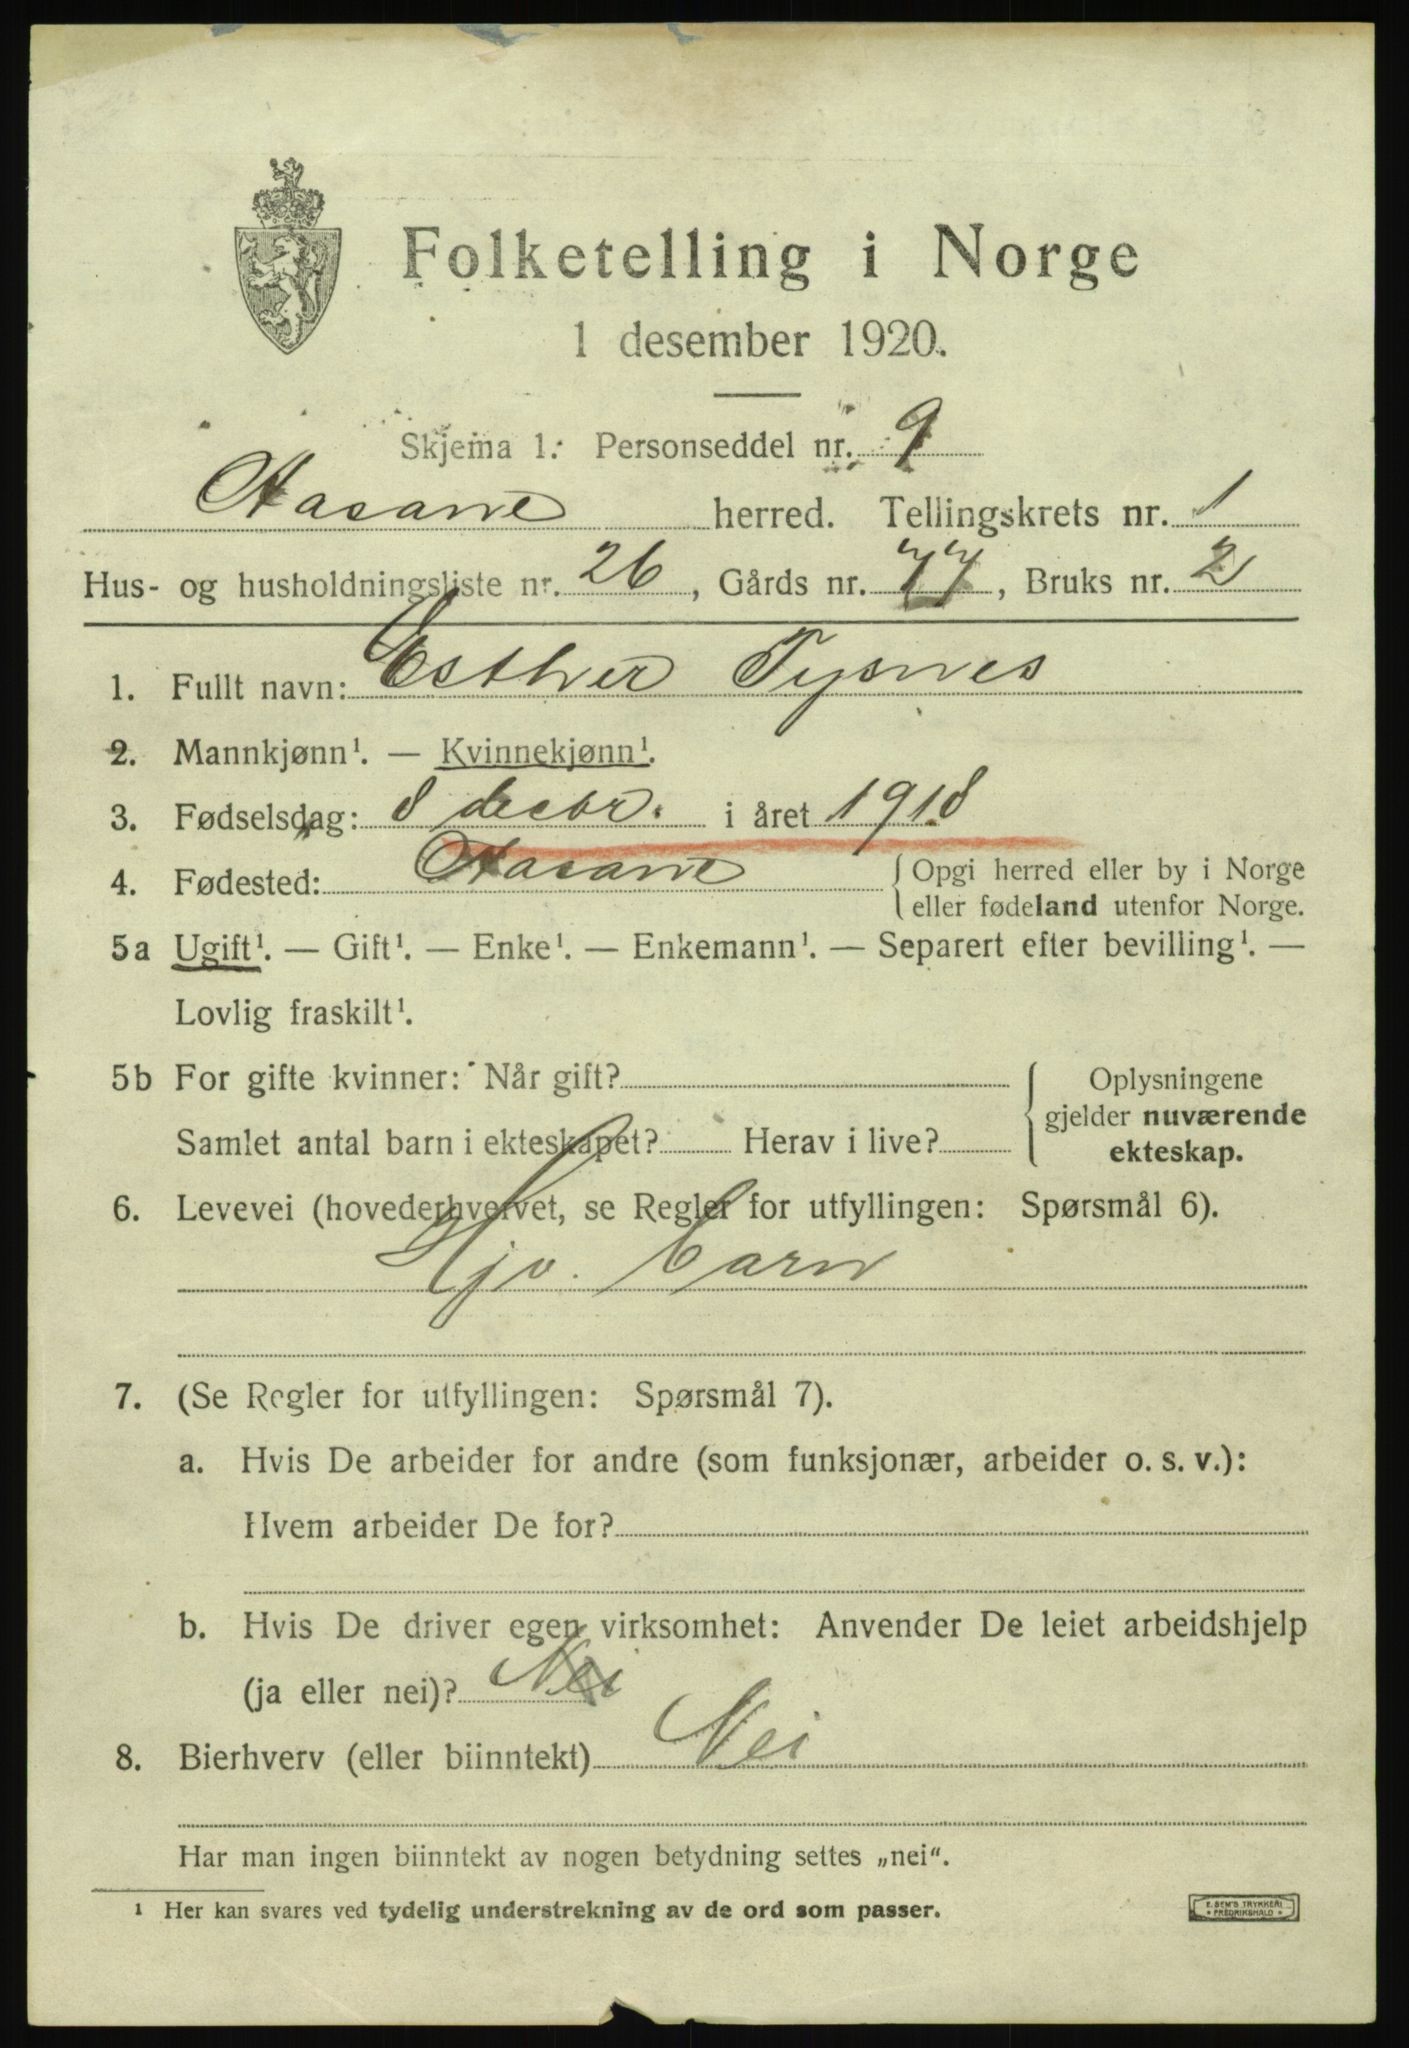 Folketelling i Norge
1 desember 1920.
Skjema 1. Personseddel nr. 9
Aasane herred. Tellingskrets nr. 1
Hus- og husholdningsliste nr. 26, Gårds nr. 77, Bruks nr. 2
1. Fullt navn: Esther Tysnes
2. Mannkjønn¹. — Kvinnekjønn¹.
3. Fødselsdag: 8 decbr. i året 1918
4. Fødested: Aasane { Opgi herred eller by i Norge
eller fødeland utenfor Norge.
5a Ugift¹. — Gift¹. — Enke¹. — Enkemann¹. — Separert efter bevilling¹. —
Lovlig fraskilt¹.
5b For gifte kvinner: Når gift? { Oplysningene
gjelder nuværende
Samlet antal barn i ekteskapet? Herav i live?
ekteskap.
6. Levevei (hovederhvervet, se Regler for utfyllingen: Spørsmål 6).
Hjv. barn
7. (Se Regler for utfyllingen: Spørsmål 7).
a. Hvis De arbeider for andre (som funksjonær, arbeider o. s. v.):
Hvem arbeider De for?
b. Hvis De driver egen virksomhet: Anvender De leiet arbeidshjelp
(ja eller nei)? Nei
8. Bierhverv (eller biinntekt) Nei
Har man ingen biinntekt av nogen betydning settes „nei“.
¹ Her kan svares ved tydelig understrekning av de ord som passer.
E. SEM'S TRYKKERI
* FREDRIKSHALD *